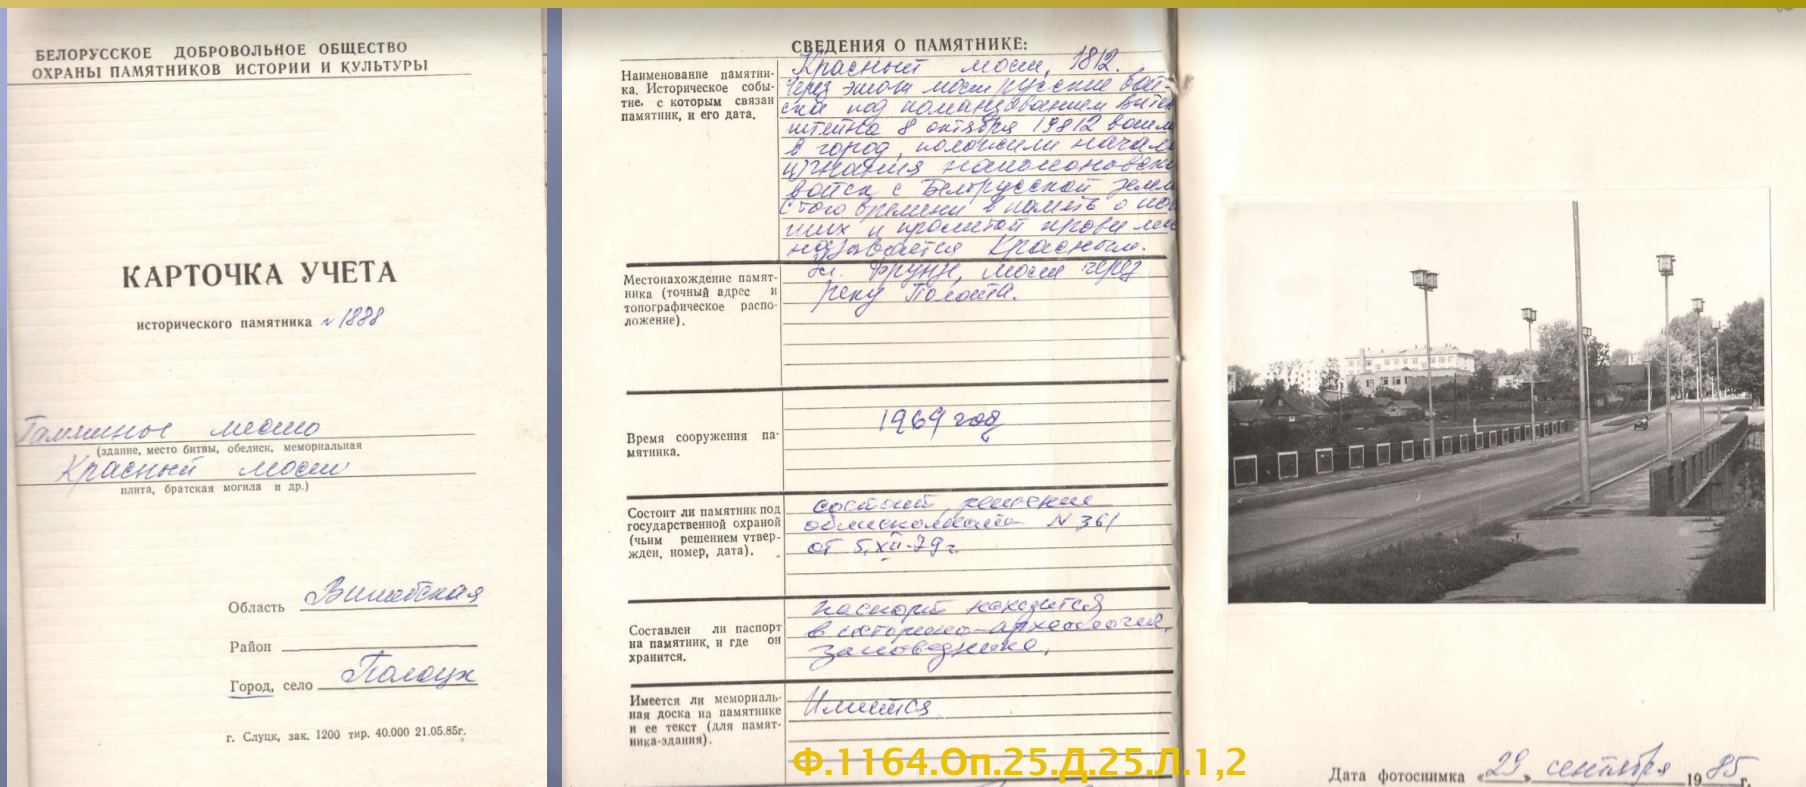 БЕЛОРУССКОЕ ДОБРОВОЛЬНОЕ ОБЩЕСТВО
ОХРАНЫ ПАМЯТНИКОВ ИСТОРИИ И КУЛЬТУРЫ
КАРТОЧКА УЧЕТА
исторического памятника № 1888
место
(здание, место битвы, обелиск, мемориальная
Красный мост
плита, братская могила и др.)
Область Витебская
Район
Город, село Полоцк
г. Слуцк, зак. 1200 тир. 40.000 21.05.85г.
СВЕДЕНИЯ О ПАМЯТНИКЕ:
Наименование памятни-
ка. Историческое собы-
тие, с которым связан
памятник, и его дата.
Красный мост, 1812.
Через этот мост русские вой-
ска под командованием Витген
штейна 8 октября 19812 вошли
в город, положили начало
изгнания наполеоновски
войск с Белорусской земли
С того времени в память о по
гших и пролитой крови мо
называется Красным.
Местонахождение памят-
ника (точный адрес и
топографическое распо-
ложение).
ул. Фрунзе, мост через
реку Полота.
Время сооружения па-
мятника.
1969 год
Состоит ли памятник под
государственной охраной
(чьим решением утвер-
жден, номер, дата).
состоит, решение
облисполкома N 361
от 5.XII-79г
Составлен ли паспорт
на памятник, и где он
хранится.
паспорт находится
в историко-археологич.
заповеднике,
Имеется ли мемориаль-
ная доска на памятнике
и ее текст (для памят-
ника-здания).
Имеется
Ф.1164.Оп.25.Д.25.Л.1,2
Дата фотоснимка «29» сентября 1985г.